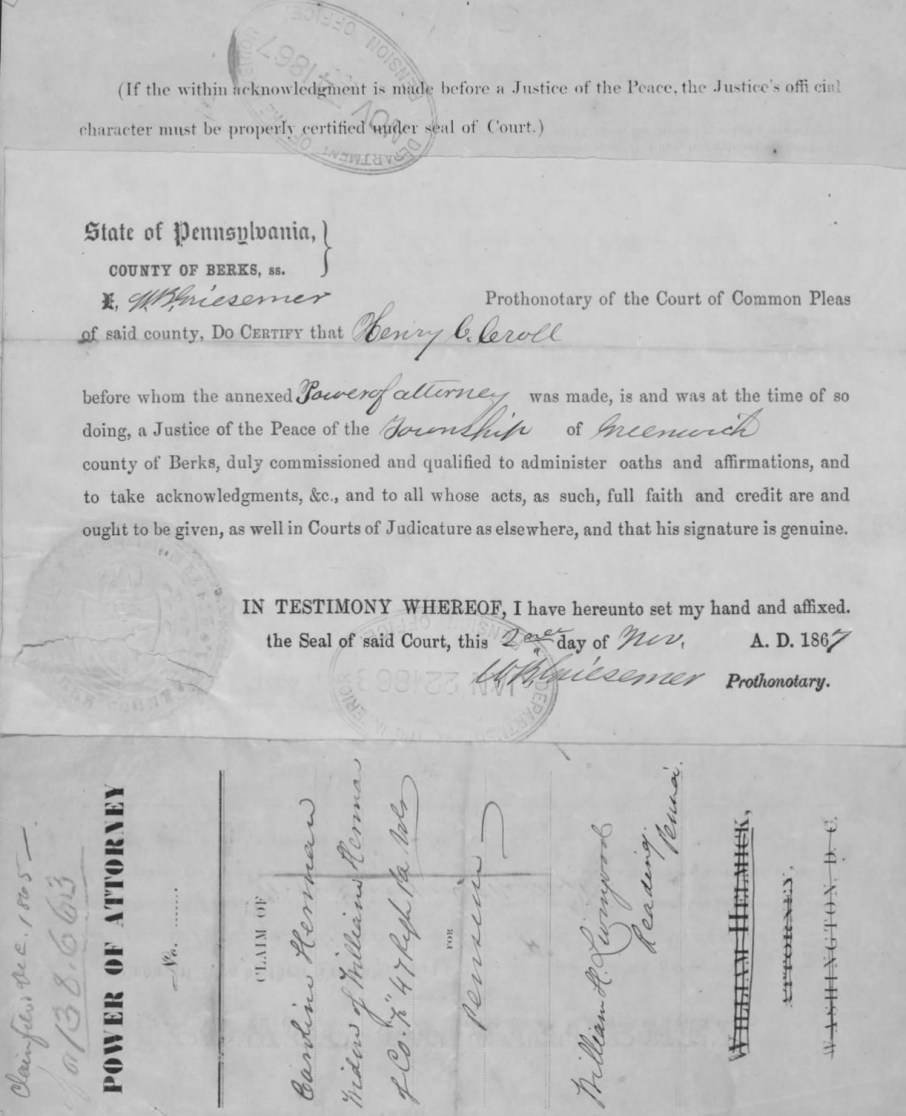 (If the within acknowledgment is made before a Justice of the Peace, the Justice's offi cial
character must be properly certified under seal of Court.)
PENSION OFFICE
NOV 1867
DEPARTMENT OF
State of Pennsylvania,
COUNTY OF BERKS, ss.
I, W. B. Griesemer Prothonotary of the Court of Common Pleas
of said county, DO CERTIFY that Henry C. Croll
before whom the annexed Power of attorney was made, is and was at the time of so
doing, a Justice of the Peace of the Township of Greenwich
county of Berks, duly commissioned and qualified to administer oaths and affirmations, and
to take acknowledgments, &c., and to all whose acts, as such, full faith and credit are and
ought to be given, as well in Courts of Judicature as elsewhere, and that his signature is genuine.
IN TESTIMONY WHEREOF, I have hereunto set my hand and affixed.
the Seal of said Court, this 2 day of Nov. A. D. 1867
W B Griesemer Prothonotary.
JAN 22 1868
Claim filed Dec. 1865
138.663
POWER OF ATTORNEY
No.
CLAIM OF
Caroline Herman
Widow of William Herman
of Co. 47 Regt Pa Vols
FOR
Pension
William H. Livingood
Reading
Penna.
WILLIAM HELMICK,
ATTORNEY,
WASHINGTON, D. C.